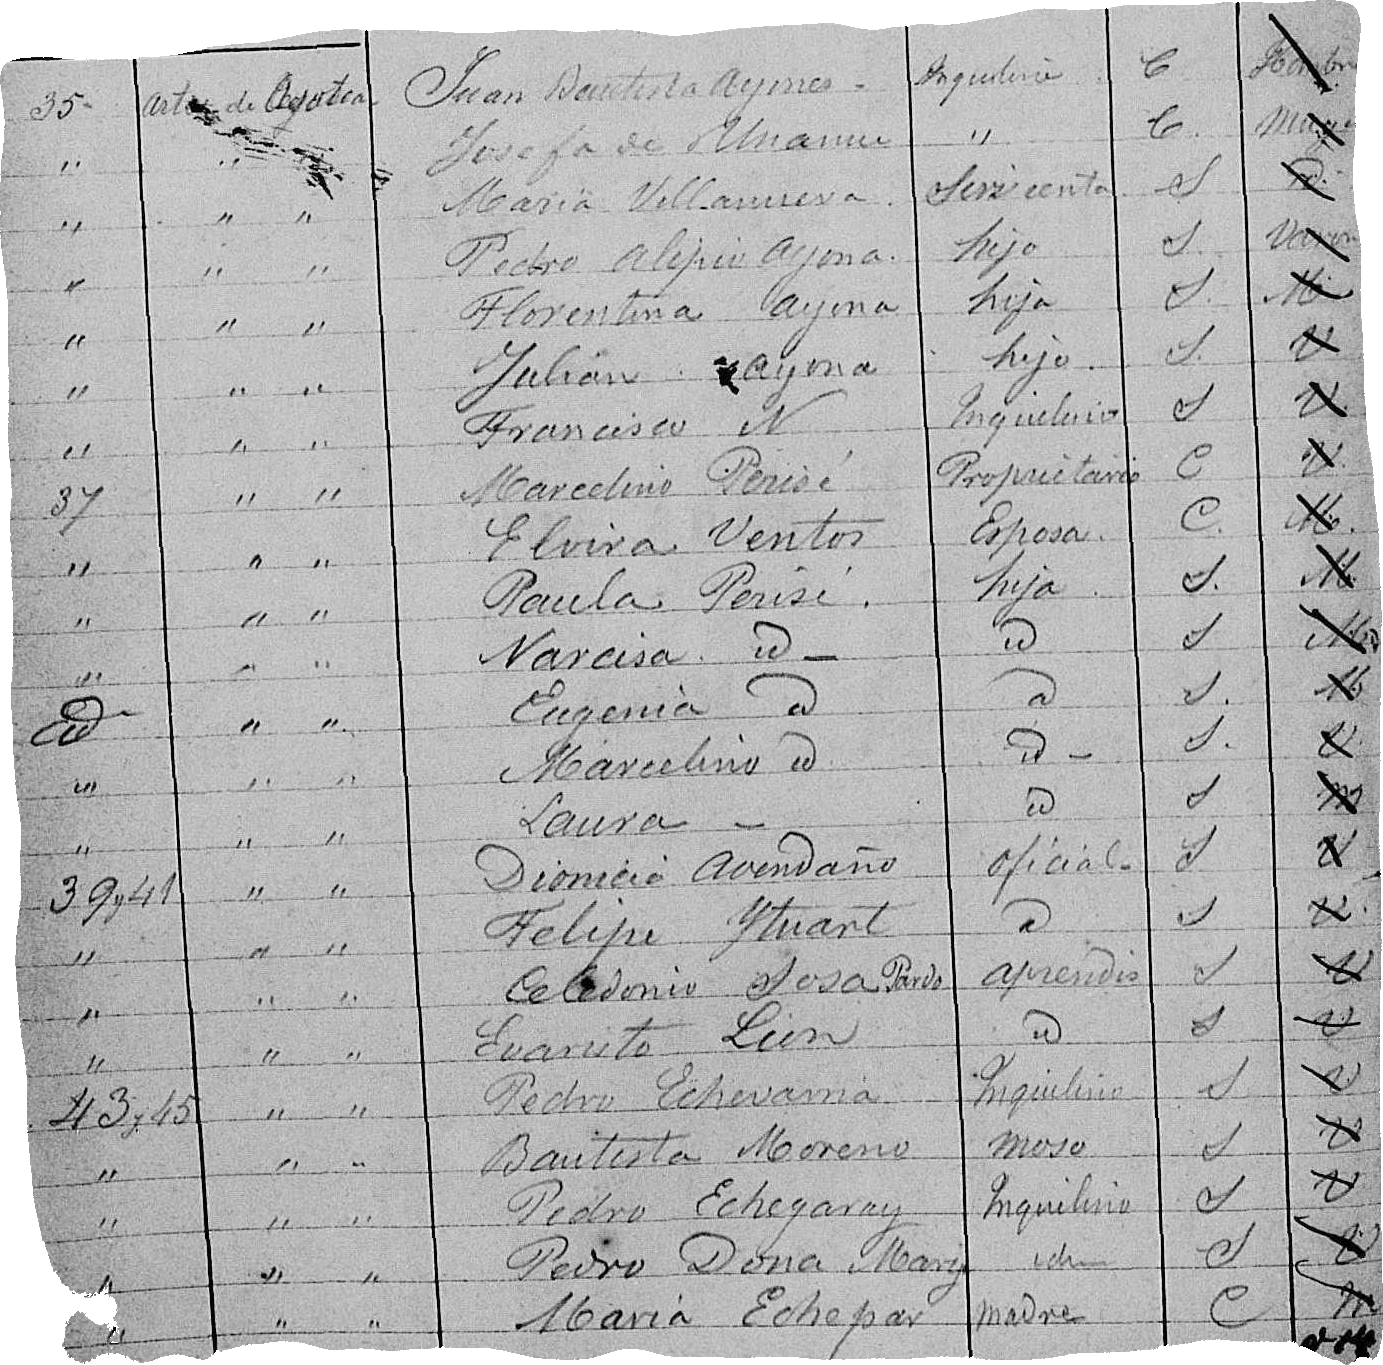 35 Artes de Ayotea Juan Bautista Aymes - Inquilino C Hombre
" " " Josefa de Unanue " C. Muger
" " " Maria Villanueva. Sirvienta S id.
" " " Pedro Alipio Ayona. hijo S. Varon
" " " Florentina Ayona hija S. M.
" " " Julian Ayona hijo. S. V
" " " Francisco N Inquilino S V.
37 " " Marcelino Perisé Proprietario C V.
" " " Elvira Ventos Esposa. C. M.
" " " Paula Perisé. hija. S. M.
" " " Narcisa. id - id S M
id " " Eugenia id id S. M
" " " Marcelino id id - S. V
" " " Laura - id S M
39 y 41 " " Dionicio Avendaño oficial - S V
" " " Felipe Ytuart id S V.
" " " Celedonio Sosa Pardo aprendis S V
" " " Evaristo Lion id S V
43 y 45 " " Pedro Echevarria Inquilino S V
" " " Bautista Moreno Moso S V
" " " Pedro Echegaray Inquilino S V
" " " Pedro Dona Mary idm S V
" " " Maria Echepar Madre C M